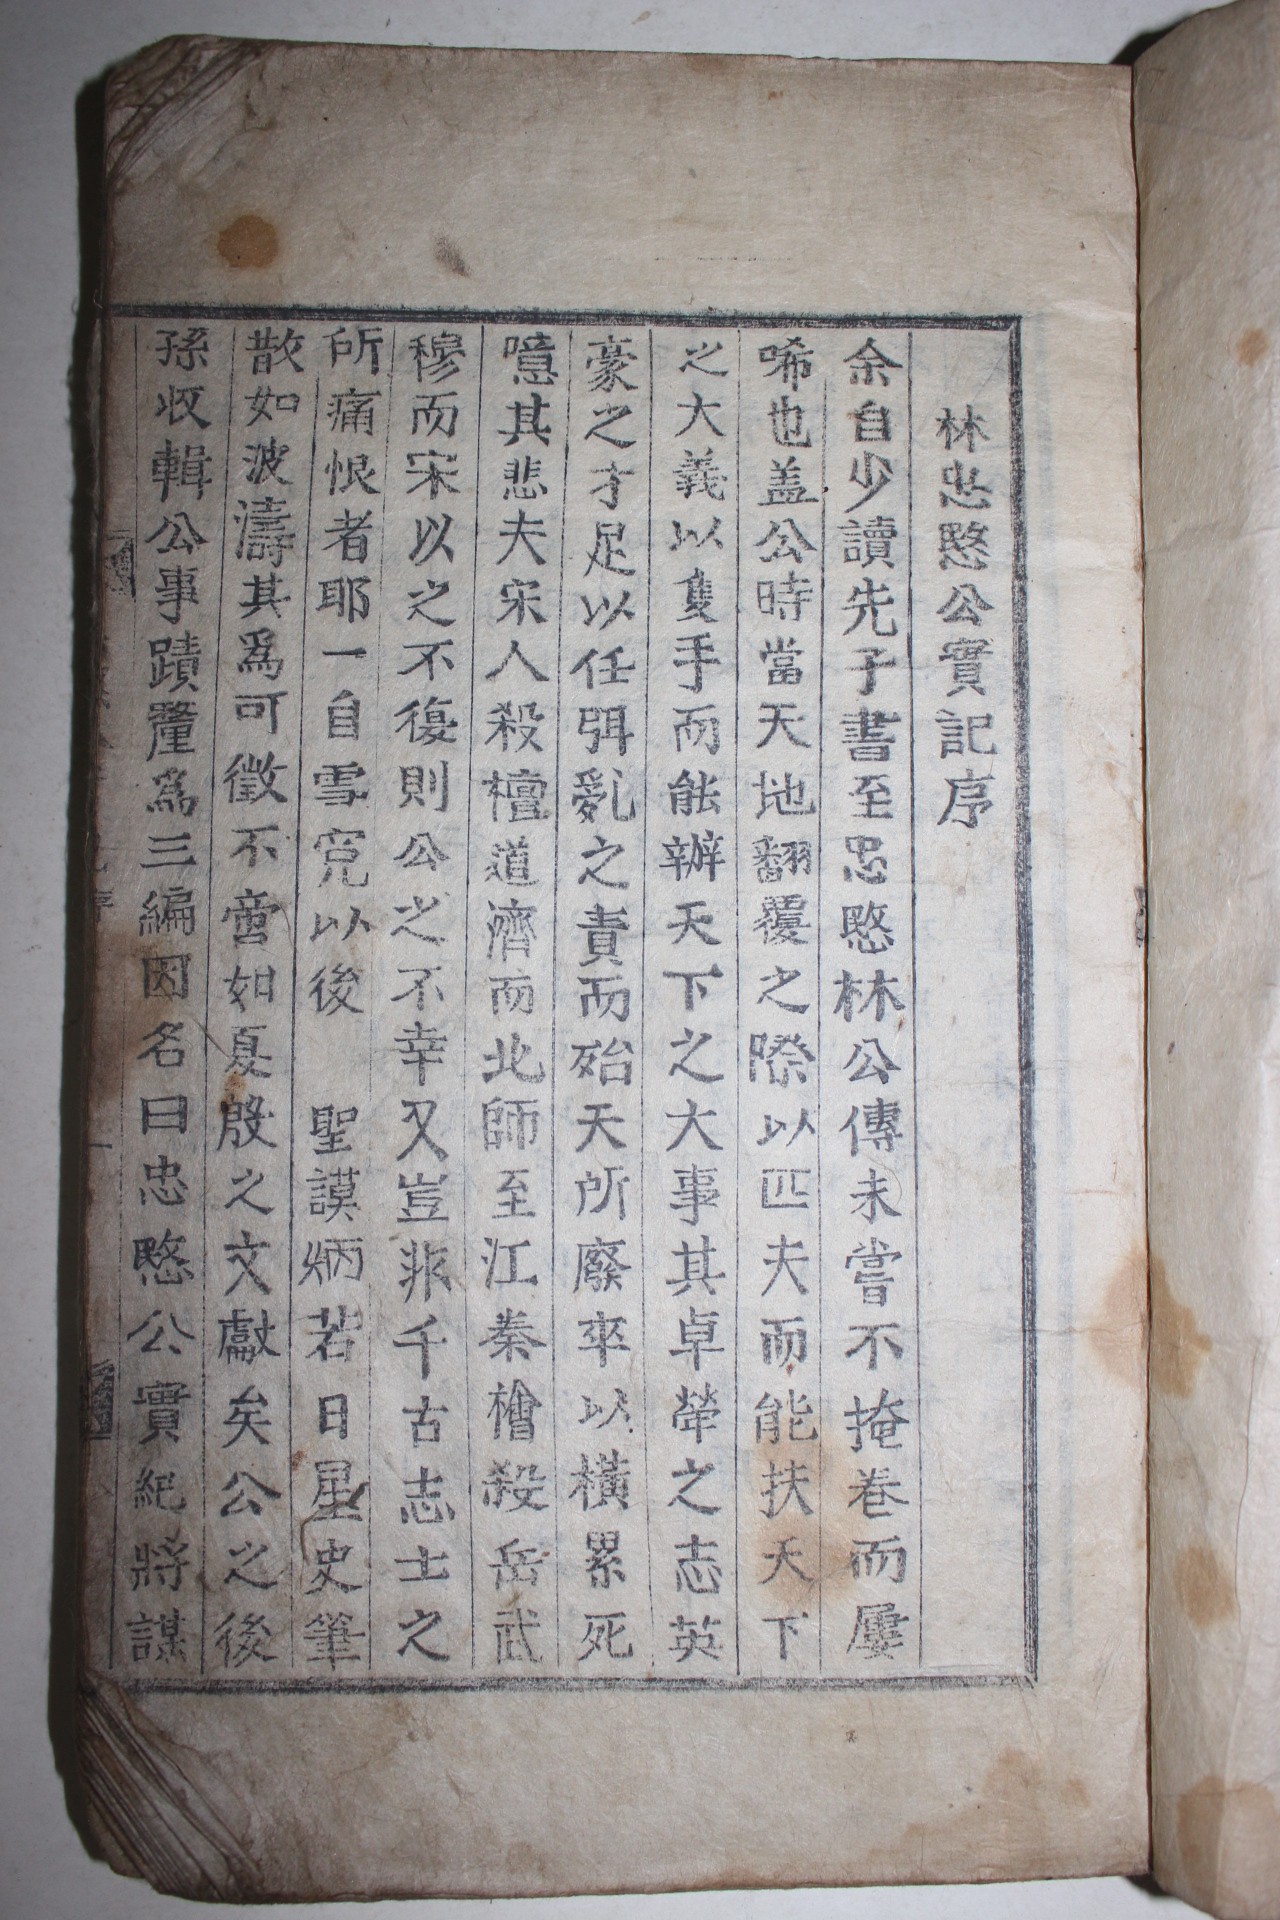 林忠愍公實記序
余自少讀先子書至忠愍林公傳未嘗不掩卷而屢
唏也盖公時當天地翻覆之際以匹夫而能扶天下
之大義以隻手而能辦天下之大事其卓犖之志英
豪之才足以任弭亂之責而殆天所廢卒以橫罹死
噫其悲夫宋人殺檀道濟而北師至江秦檜殺岳武
穆而宋以之不復則公之不幸又豈非千古志士之
所痛恨者耶一自雪寃以後 聖謨炳若日星史筆
散如波濤其爲可徵不啻如夏殷之文獻矣公之後
孫收輯公事蹟釐爲三編因名曰忠愍公實紀將謀